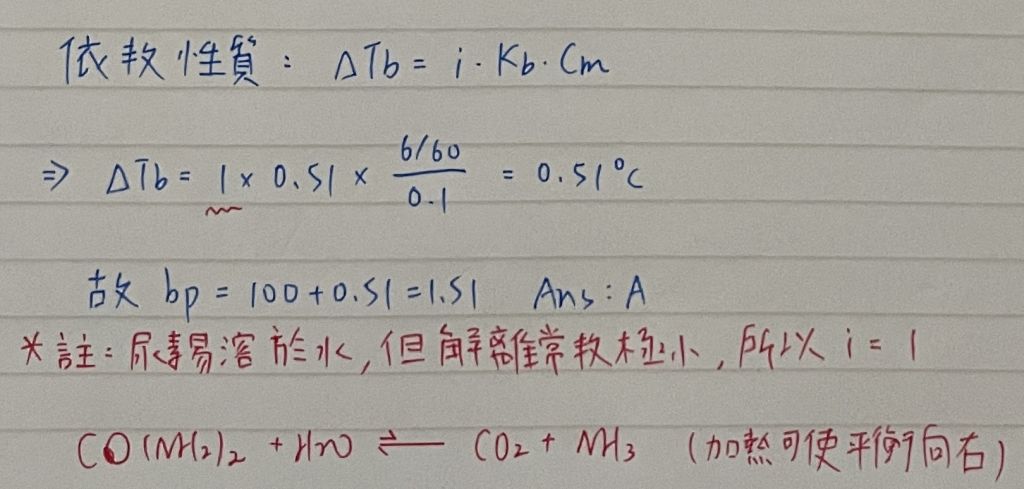 依數性質： ΔTb = i · Kb · Cm
⇒ ΔTb = 1 × 0.51 × (6/60)/0.1 = 0.51°C
故 bp = 100 + 0.51 = 1.51 Ans : A
*註：尿毒易溶於水，但解離常數極小，所以 i = 1
CO(NH2)2 + H2O ⇌ CO2 + NH3 （加熱可使平衡向右）